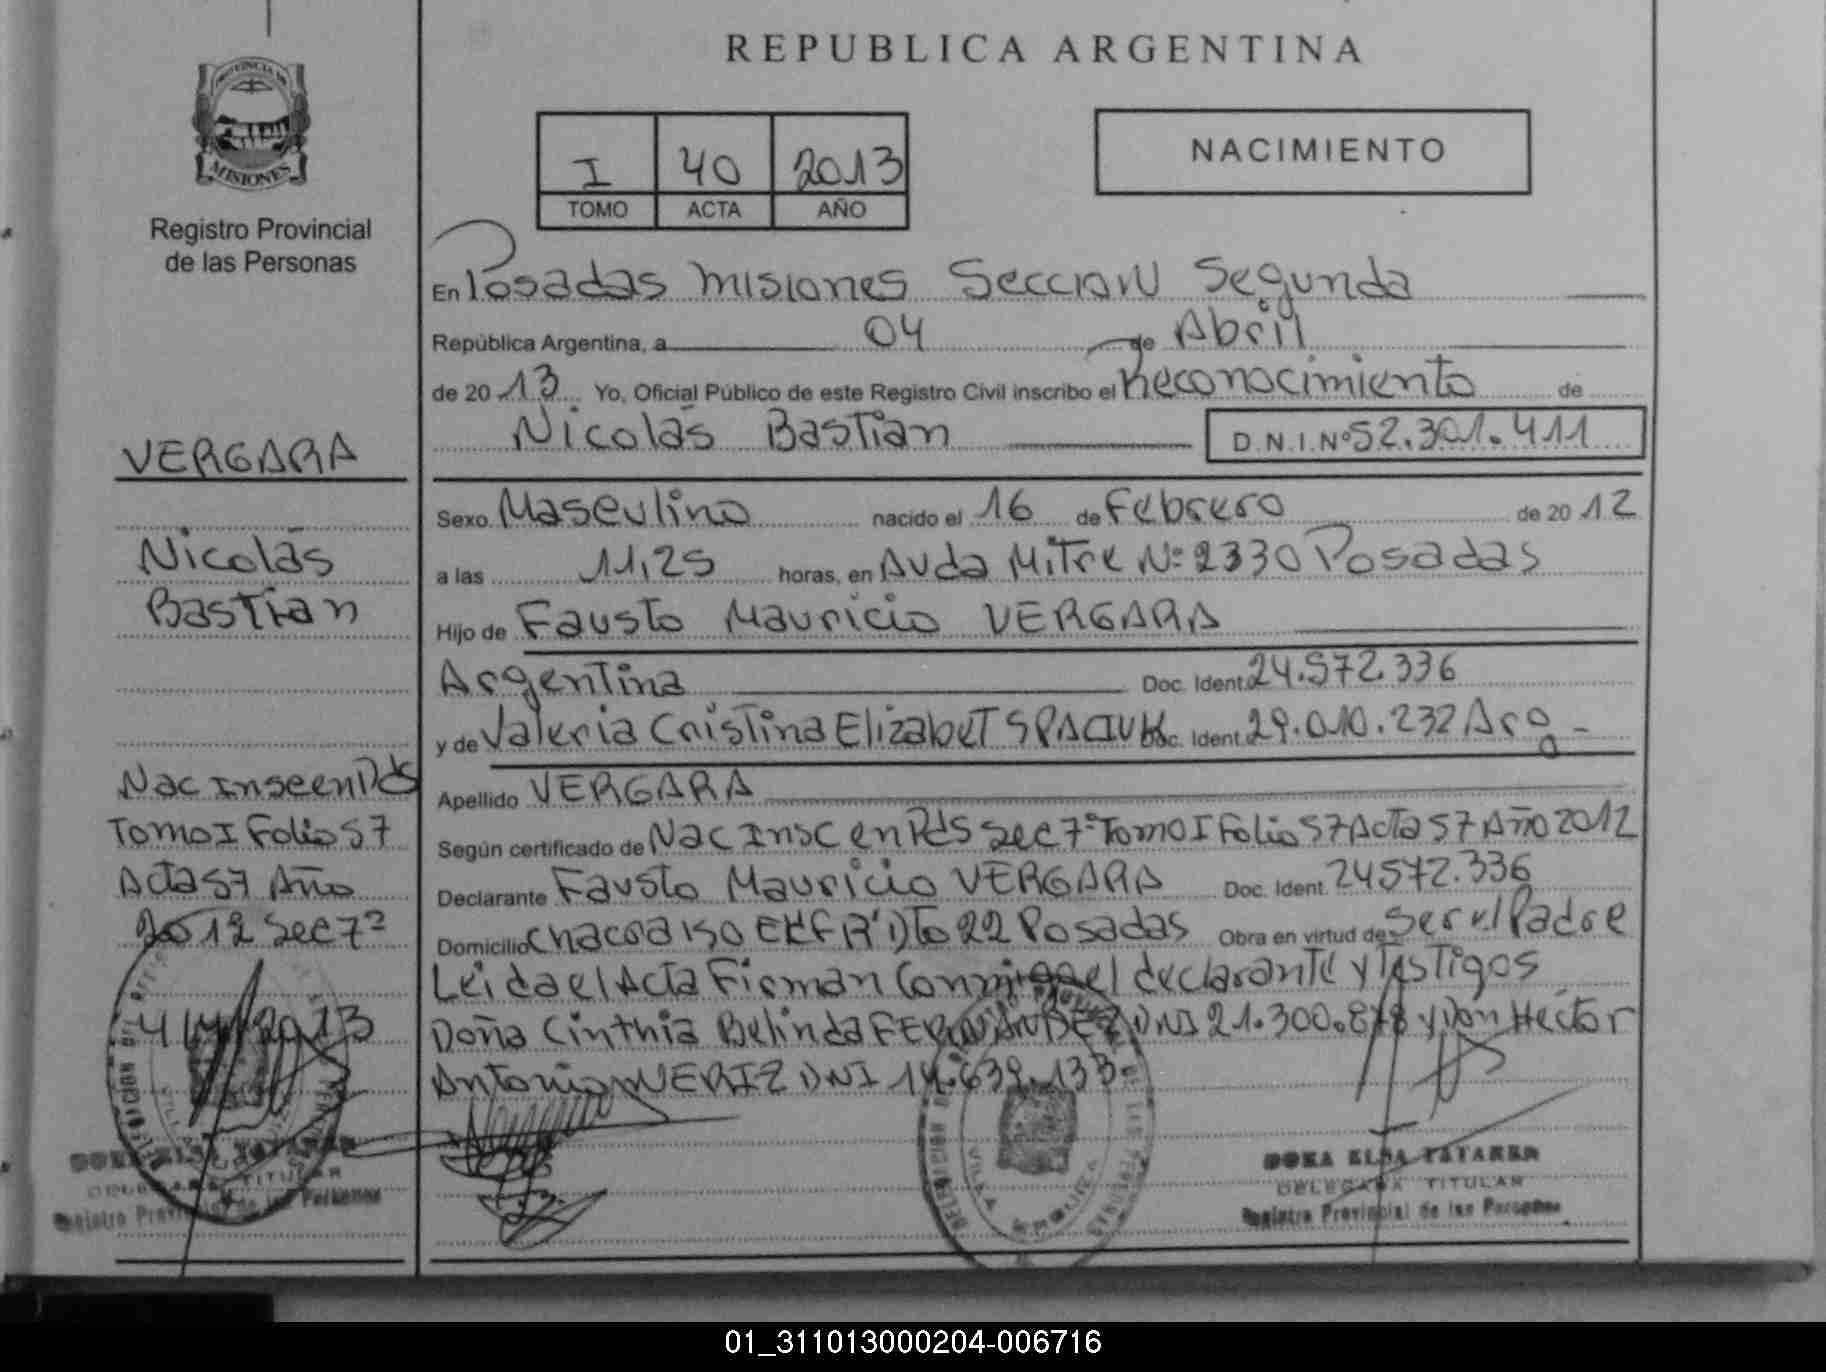 REPUBLICA ARGENTINA
PROVINCIA DE
MISIONES
Registro Provincial
de las Personas
I 40 2013
TOMO ACTA AÑO
NACIMIENTO
En Posadas Misiones Seccion Segunda
República Argentina, a 04 de Abril
de 2013 Yo, Oficial Público de este Registro Civil inscribo el Reconocimiento de
Nicolás Bastian D.N.I.Nº 52.301.411
VERGARA
Nicolás
Bastian
Sexo Masculino nacido el 16 de Febrero de 2012
a las 11,25 horas, en Avda Mitre Nº 2330 Posadas
Hijo de Fausto Mauricio VERGARA
Argentina Doc. Ident. 24.572.336
y de Valeria Cristina Elizabet Doc. Ident. 29.010.232 Arg-
Apellido VERGARA
Según certificado de Nac Insc en Pds Sec 7ª Tomo I Folio 57 Acta 57 Año 2012
Declarante Fausto Mauricio VERGARA Doc. Ident. 24572.336
Domicilio Chacra 150 Dto 22 Posadas Obra en virtud de Ser el Padre
Leida el Acta Firman Conmigo el declarante y Testigos
Doña Cinthia Belinda FERNANDEZ DNI 21.300.878 y Don Hector
Antonio NERIZ DNI 14.639.133
Nac Insc en Pds
Tomo I Folio 57
Acta 57 Año
2012 Sec 7ª
4/4/2013
DELEGADA TITULAR
Registro Provincial de las Personas
DELEGADA TITULAR
Registro Provincial de las Personas
01_311013000204-006716